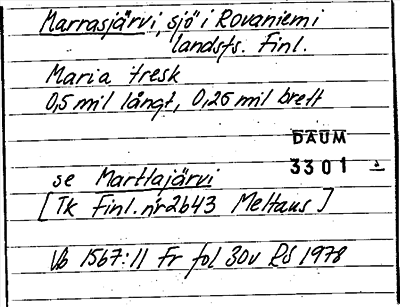 Marrasjärvi, sjö i Rovaniemi
landsfs. Finl.
Maria tresk
0,5 mil långt, 0,25 mil brett
DAUM
3301
se Marttajärvi
[Tk Finl. nr 2643 Meltaus]
Vb 1567:11 Fr fol 30v RS 1978